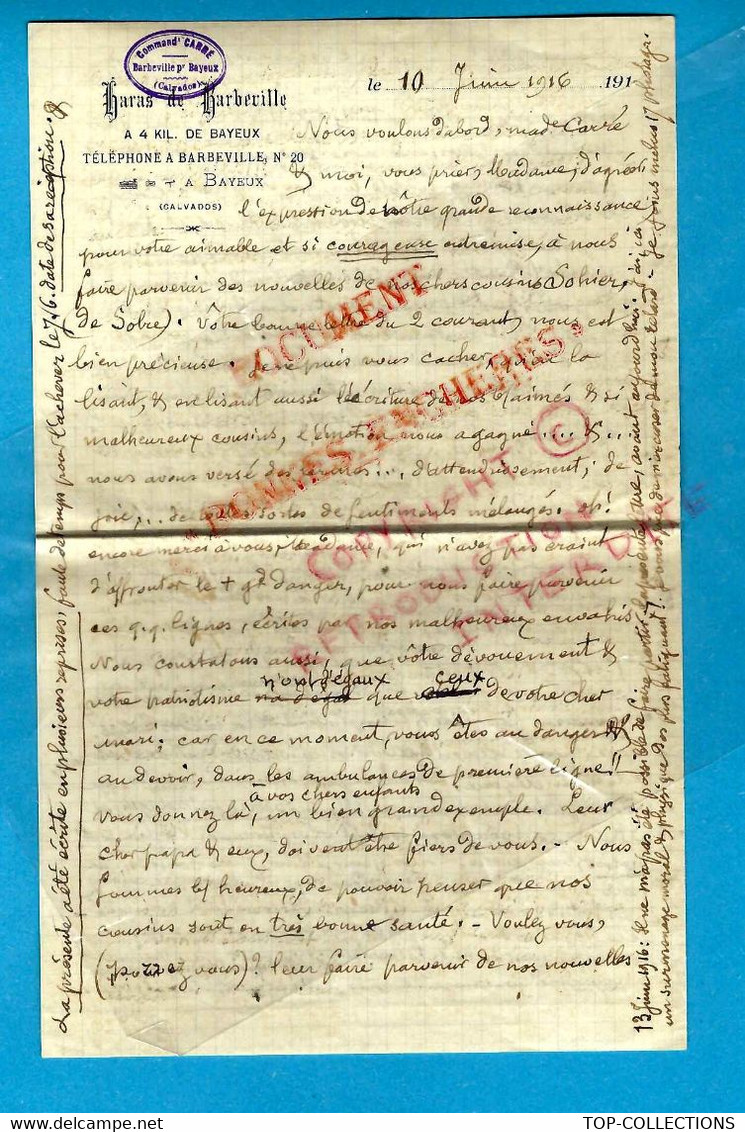 Command.t CARRÉ
Barbeville p.r Bayeux
(Calvados)
Haras de Barbeville
A 4 KIL. DE BAYEUX
TÉLÉPHONE A BARBEVILLE, N° 20
A BAYEUX
(CALVADOS)
le 10 Juin 1916 191
Nous voulons d'abord, mad.e Carré
& moi, vous prier, Madame, d'agréer
l'expression de nôtre grande reconnaissance
pour votre aimable et si courageuse entremise, à nous
faire parvenir des nouvelles de nos chers cousins Sohier,
de Sobre). Vôtre bonne lettre du 2 courant, nous est
bien précieuse. Je ne puis vous cacher, qu'en la
lisant, & en lisant aussi l'écriture de nos aimés & si
malheureux cousins, l'émotion nous a gagné.... &...
nous avons versé des larmes... d'attendrissement, de
joie,... de toutes sortes de sentiments mélangés. oh!
encore merci à vous, Madame, qui n'avez pas craint
d'affronter le + gd danger, pour nous faire parvenir
ces q.q. lignes, écrites par nos malheureux envahis.
Nous constatons aussi, que vôtre dévouement &
votre patriotisme n'ont d'égaux que ceux de votre cher
mari; car en ce moment, vous êtes au danger &
au devoir, dans les ambulances de première ligne!!
vous donnez là, à vos chers enfants, un bien grand exemple. Leur
cher papa & eux, doivent être fiers de vous. - Nous
sommes heureux, de pouvoir penser que nos
cousins sont en très bonne santé. - Voulez vous,
(pouvez vous)? leur faire parvenir de nos nouvelles
La présente a été écrite en plusieurs reprises, faute de temps pour l'achever le 7.6. date de sa réception.
13 Juin 1916: Il ne m'a pas été possible de faire partir la présente lettre, avant aujourd'hui. J'ai ici
un surmenage moral & physique des plus fatiguant!
DOCUMENT
"POMMES-ENCHERES"
COPYRIGHT ©
REPRODUCTION
INTERDITE
TOP-COLLECTIONS